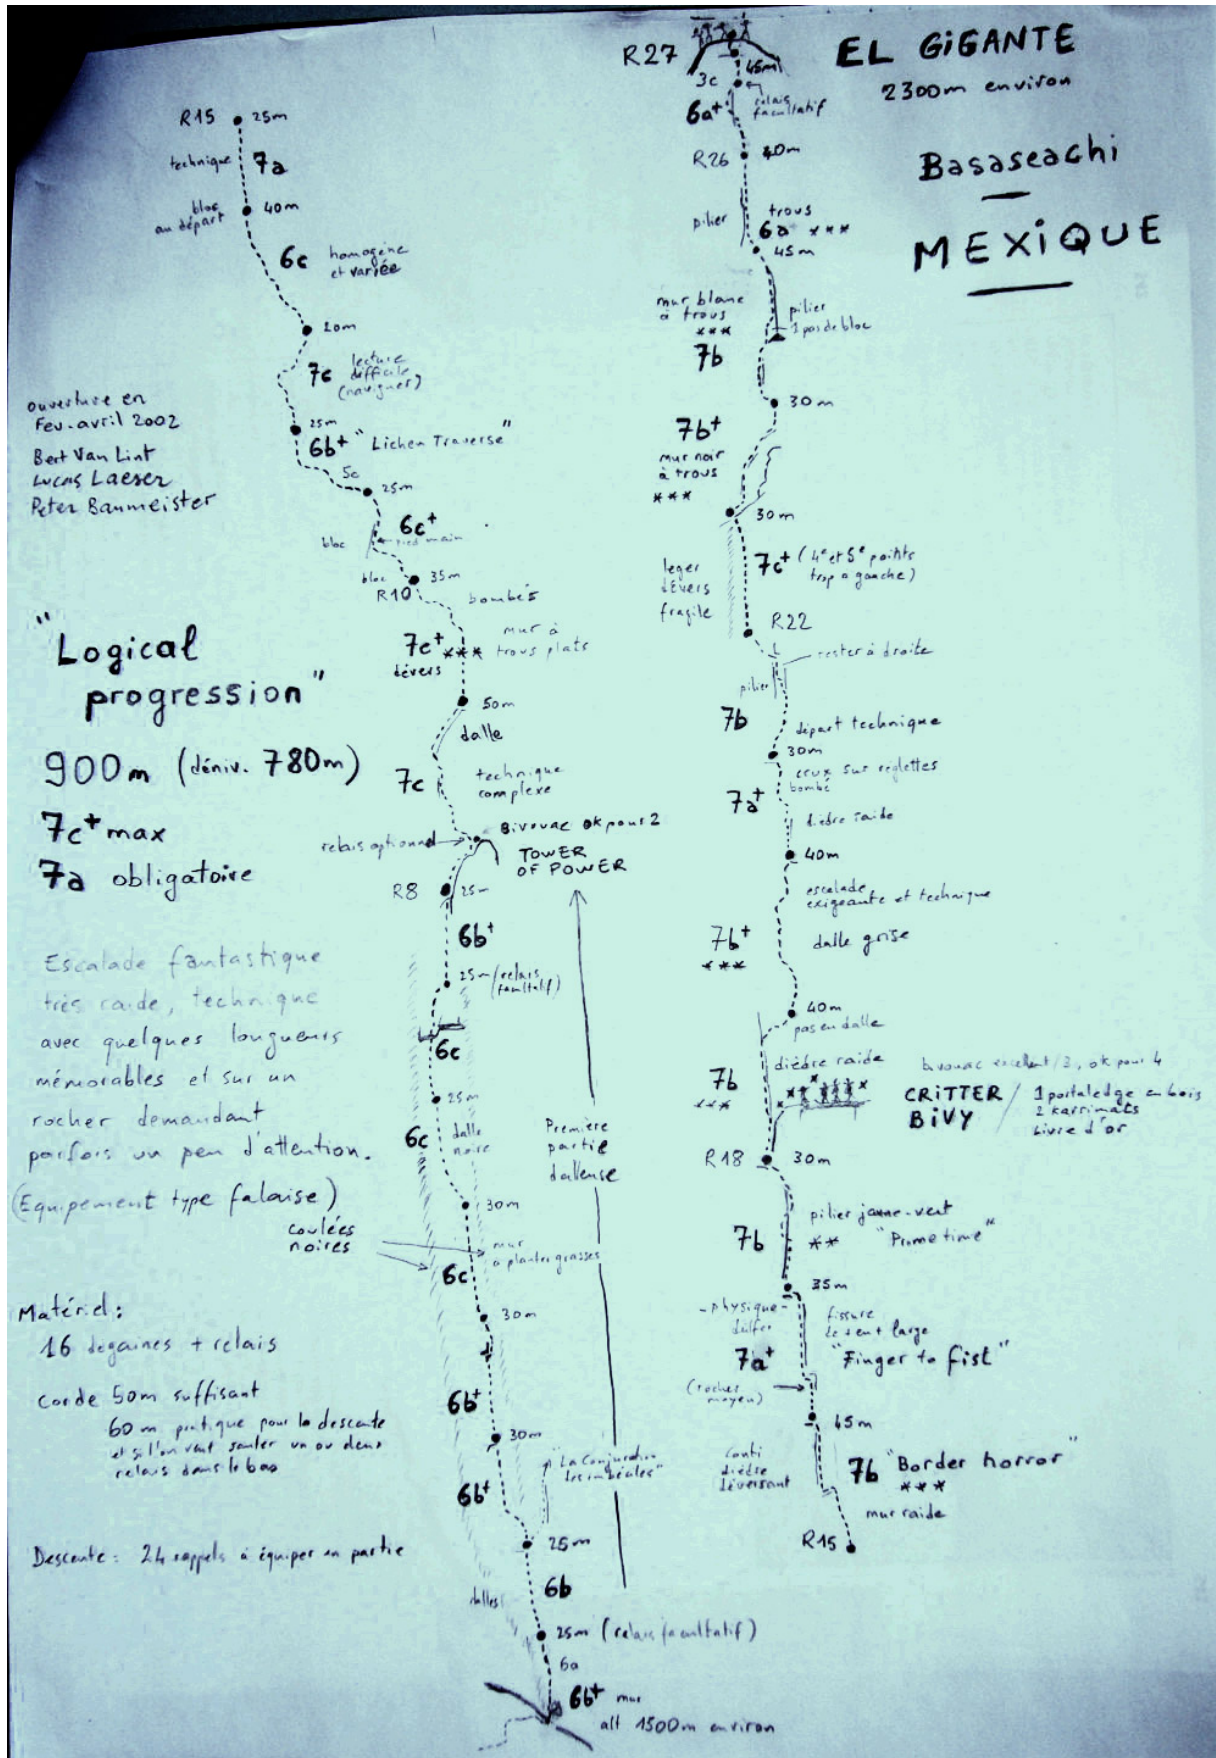 EL GiGANTE
2300m environ
Basaseachi
MEXiQUE
R15
25m
technique
7a
bloc
au départ
40m
6c
homogène
et variée
20m
7c
lecture
difficile
(naviguer)
25m
6b+
"Lichen Traverse"
5c
25m
6c+
pied main
bloc
bloc
35m
R10
bombés
7c+
***
dévers
mur à
trous plats
50m
dalle
7c
technique
complexe
relais optionnel
Bivouac ok pour 2
TOWER
OF POWER
R8
25m
6b+
25m (relais
facultatif)
6c
25m
6c
dalle
noire
Première
partie
dalleuse
30m
6c
mur
à plantes grasses
30m
6b+
30m
6b+
"La Conjuration
des imbéciles"
25m
6b
dalles
25m (relais facultatif)
6a
6b+ mur
alt 1500m environ
ouverture en
Fev-avril 2002
Bert Van Lint
Lucas Laeser
Peter Baumeister
"Logical
progression"
900m (déniv. 780m)
7c+ max
7a obligatoire
Escalade fantastique
très raide, technique
avec quelques longueurs
mémorables et sur un
rocher demandant
parfois un peu d'attention.
(Equipement type falaise)
coulées
noires
Matériel:
16 dégaines + relais
corde 50m suffisant
60m pratique pour la descente
et si l'on veut sauter un ou deux
relais dans le bas
Descente: 24 rappels à équiper en partie
R27
45m
3c
relais
facultatif
6a+
R26
40m
pilier
trous
6a ***
45m
mur blanc
à trous
***
7b
pilier
1 pas de bloc
30m
7b+
mur noir
à trous
***
30m
leger
dévers
fragile
7c+ (4e et 5e points
trop a gauche)
R22
rester à droite
pilier
7b
départ technique
30m
crux sur réglettes
bombé
7a+
dièdre raide
40m
escalade
exigeante et technique
7b+
***
dalle grise
40m
pas en dalle
dièdre raide
7b
***
bivouac excellent/3, ok pour 4
CRiTTER
BiVY
1 portaledge en bois
2 karrimats
Livre d'or
R18
30m
pilier jaune-vert
7b
** "Prime time"
35m
-physique-
dülfer
fissure
de + en + large
7a+
"Finger to fist"
(rocher
moyen)
45m
conti
dièdre
déversant
7b "Border horror"
***
mur raide
R15